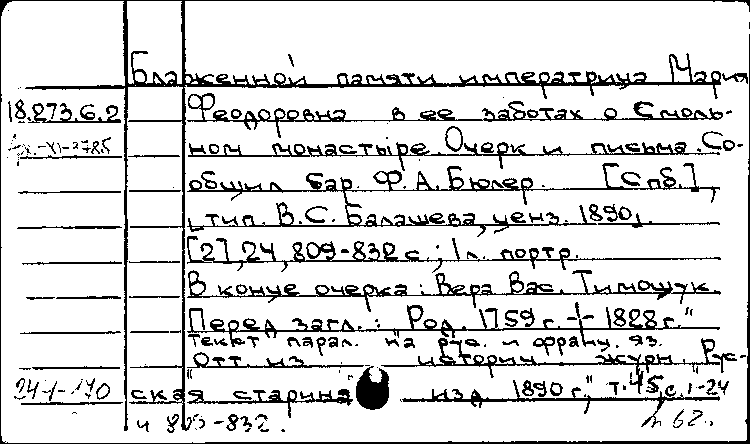 Блаженной памяти императрица Мария
18.273.6.2 Феодоровна в ее заботах о Смоль-
ном монастыре. Очерк и письма. Со-
общил бар. Ф. А. Бюлер. [Спб.],
тип. В. С. Балашева, ценз. 1890.
[2], 24, 809-832 с.; 1 л. портр.
В конце очерка: Вера Вас. Тимощук.
Перед загл.: Род. 1759 г. + 1828 г."
Текст парал. на рус. и франц. яз.
Отт. из истории. журн. "Рус-
24-1-170 ская старина изд 1890 г.", т. 45, с. 1-24
и 809-832.